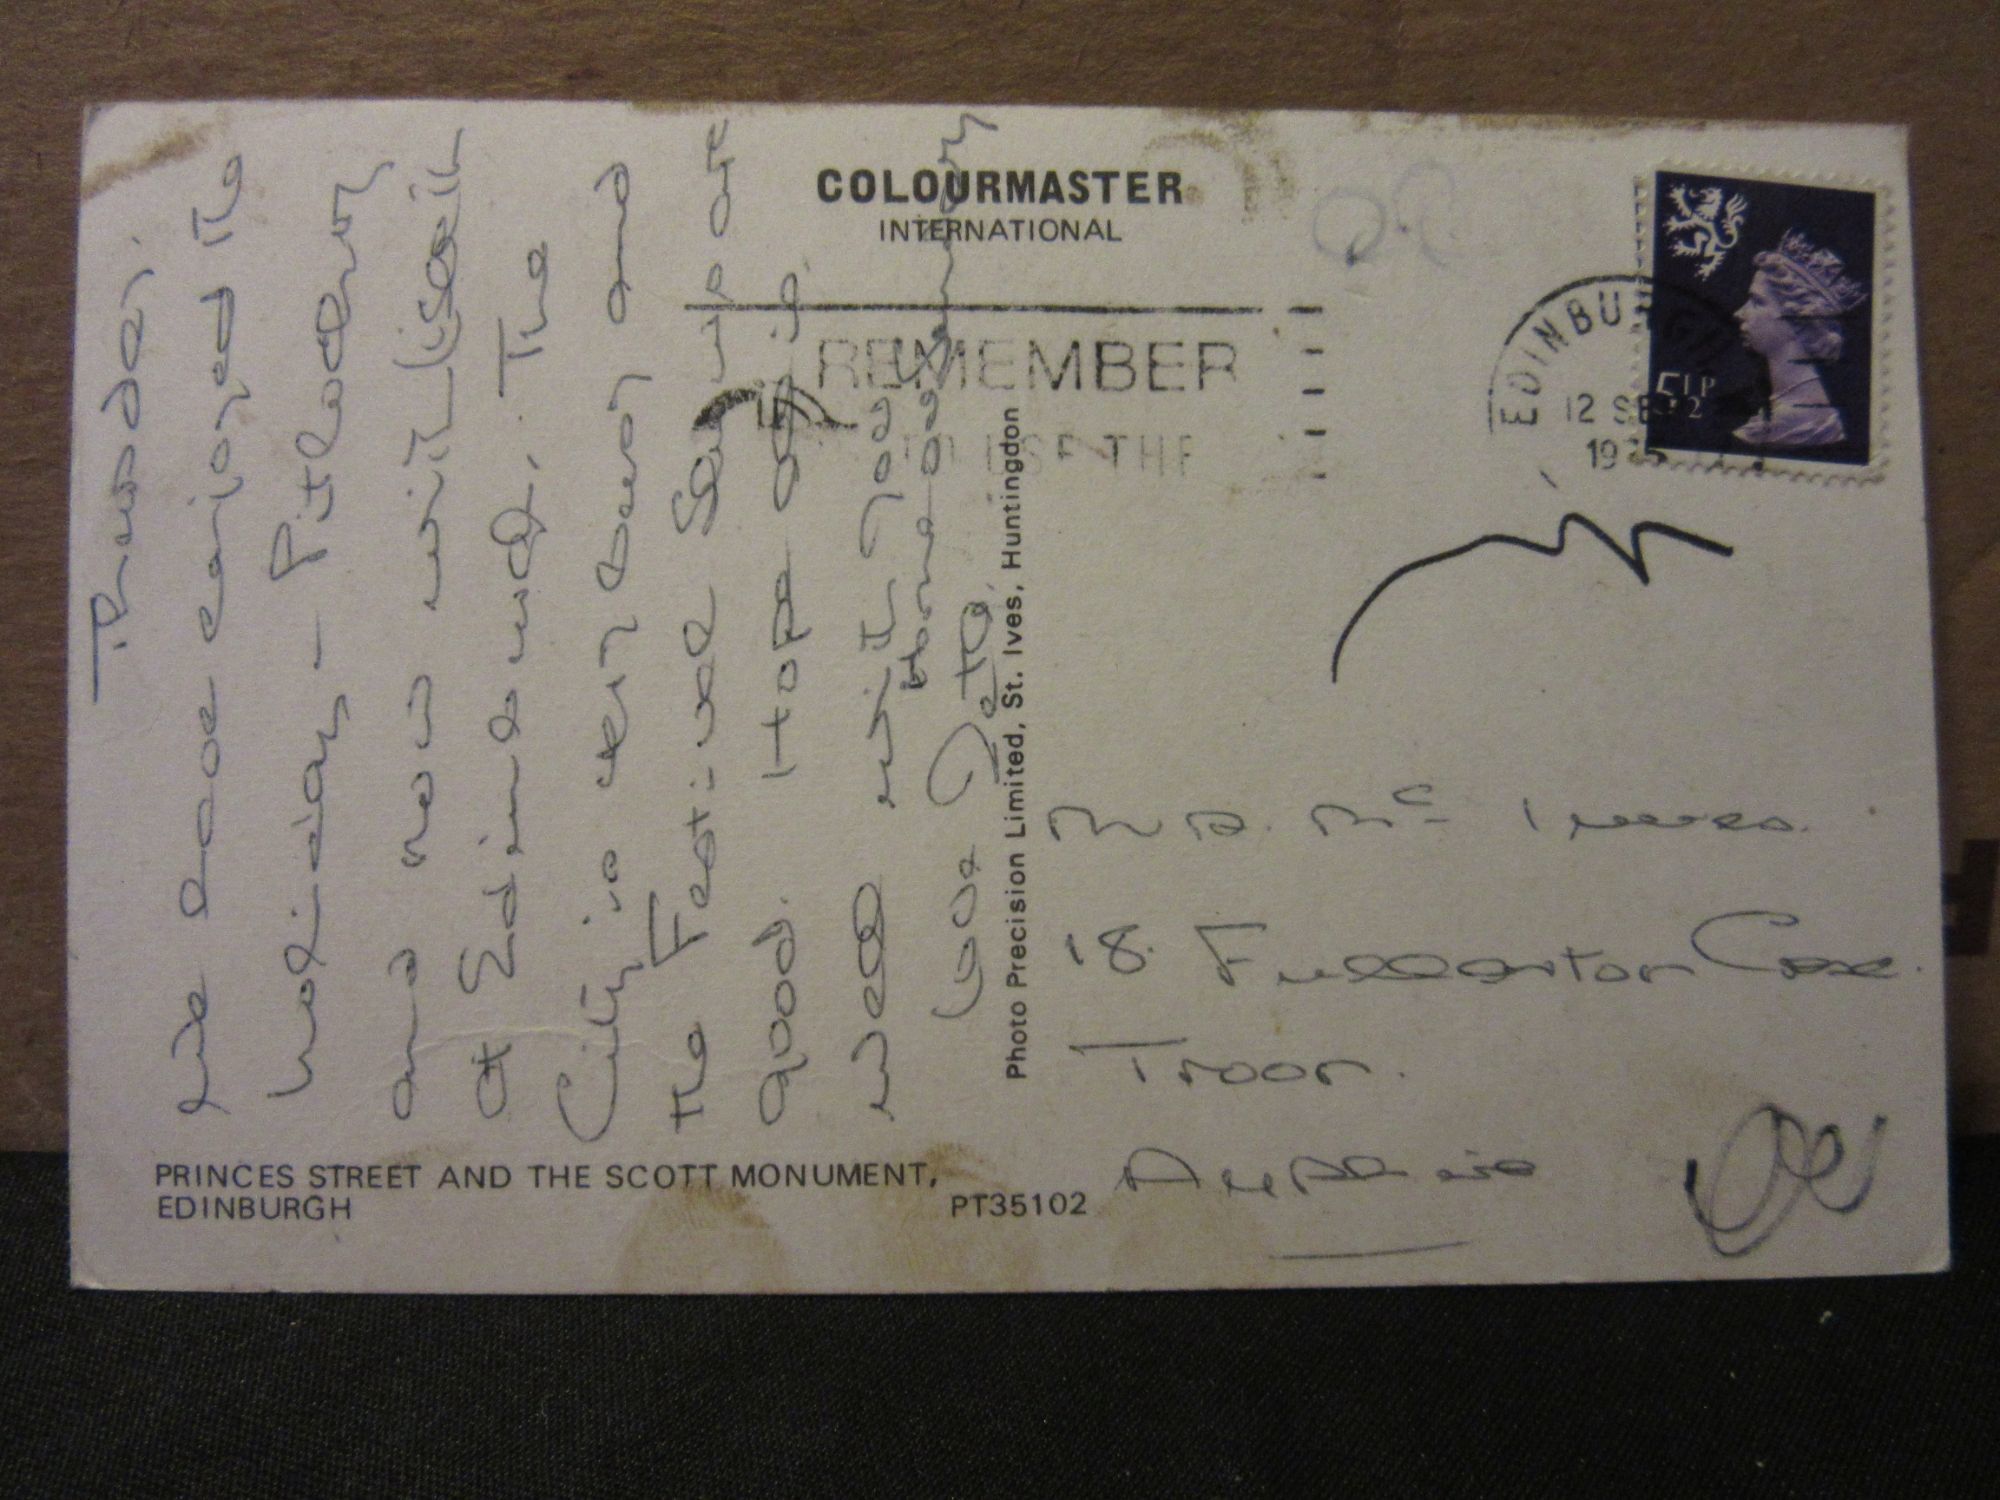 COLOURMASTER
INTERNATIONAL
Thursday.
We have enjoyed the
holiday – Pitlochry
and now with
at Edinburgh. The
City is very busy and
the Festival Shows are
good. Hope all is
well with you
Home on
Love
Photo Precision Limited, St. Ives, Huntingdon
REMEMBER
TO USE THE
EDINBURGH
12 SEP
1975
5½P
Mrs. Mc
18. Fullarton Cres.
Troon.
Ayrshire
PRINCES STREET AND THE SCOTT MONUMENT,
EDINBURGH
PT35102